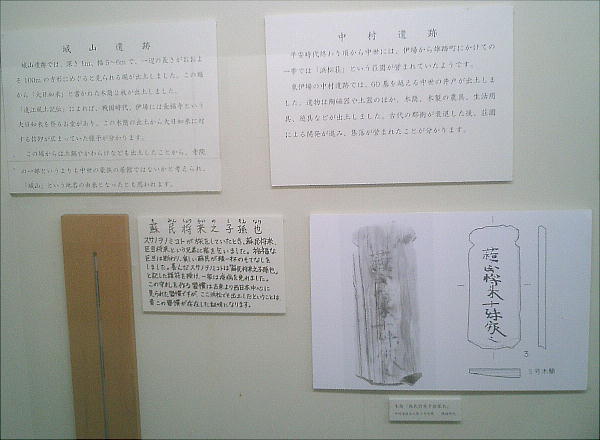 城山遺跡
城山遺跡では、深さ1m、幅5~6mで、一辺の長さがおおよ
そ100mの方形にめぐると見られる堀が出土しました。この堀
から「大日如来」と書かれた木簡2枚が出土しました。
『遠江風土記伝』によれば、戦国時代、伊場には長福寺という
大日如来を祀るお堂があり、この木簡の出土から大日如来に対
する信仰が広まっていた様子が分かります。
この堀からは土鍋やかわらけなども出土したことから、寺院
の一部というよりも中世の豪族の居館ではないかと考えられ、
「城山」という地名の由来となったとも思われます。
中村遺跡
平安時代終わり頃から中世には、伊場から雄踏町にかけての
一帯では「浜松荘」という荘園が営まれていたようです。
東伊場の中村遺跡では、60基を越える中世の井戸が出土しま
した。遺物は陶磁器や土器のほか、木簡、木製の農具、生活用
具、遊具などが出土しました。古代の郡衙が衰退した後、荘園
による開発が進み、集落が営まれたことが分かります。
蘇民将来之子孫也
スサノヲノミコトが旅をしていたとき、蘇民将来、
巨旦将来という兄弟に宿を乞いました。裕福な
巨旦は断わり、貧しい蘇民が精一杯のもてなしを
しました。喜んだスサノヲノミコトは「蘇民将来之子孫也」
と記した護符を授け、一家は疫病を免れました。
この守札を作る習慣は古来より西日本中心に
見られた習慣ですが、ここ浜松でも出土したということは
昔この習慣が存在した証拠になります。
蘇民将来子孫家之
3
3号木簡